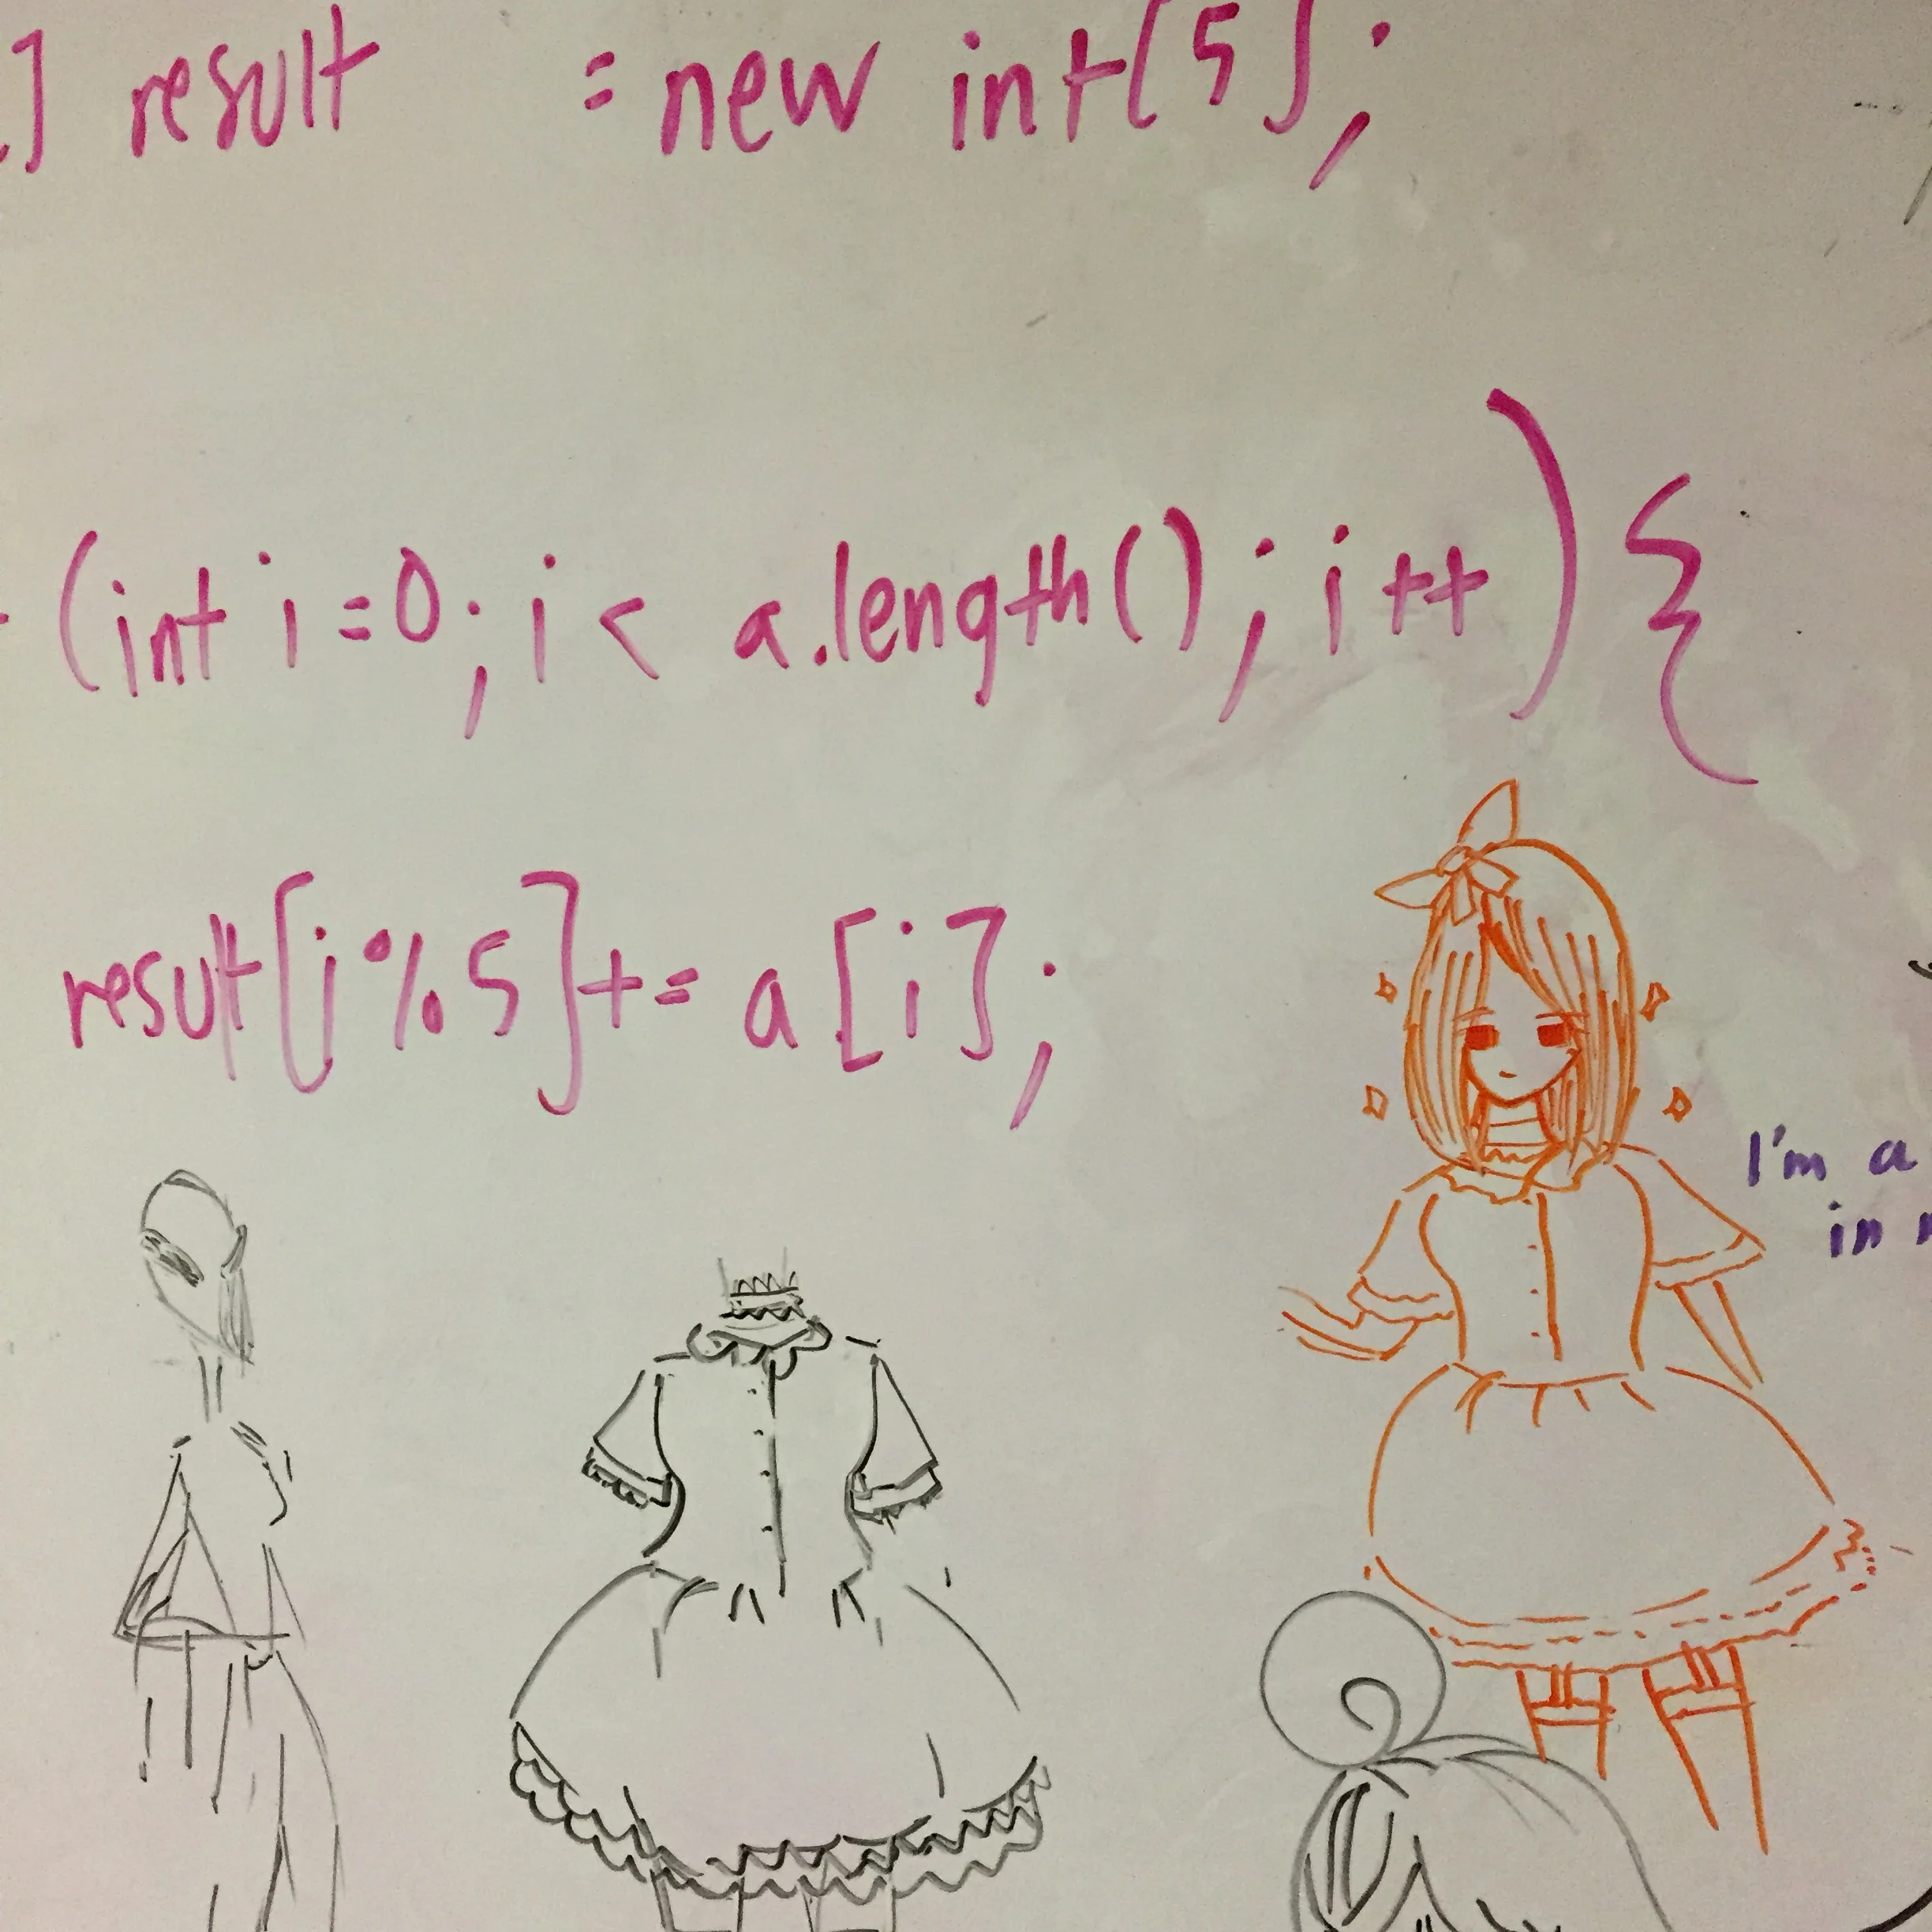 ] result = new int[5];
(int i=0; i < a.length(); i++){
result[i%5]+= a[i];
I'm a
in